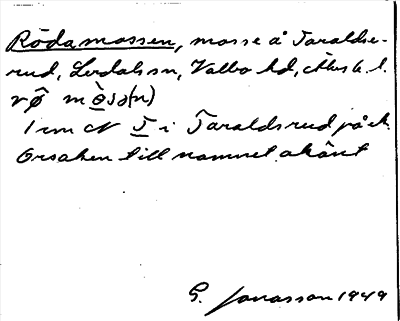 Rödamossen, mosse å Taraldse-
rud, Lerdals sn, Valbo hd, Älvsb. l.
rø̂ mòsə(n)
1 cm N T i Taraldsrud på ek.
Orsaken till namnet okänt
G. Jonasson 1949